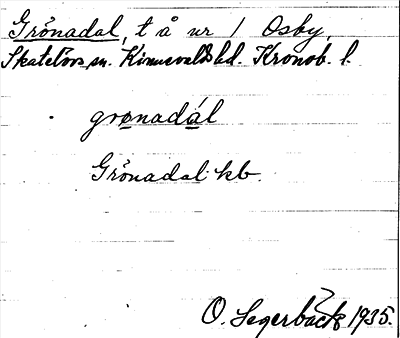 Grönadal, t å ur 1 Osby,
Skatelövs sn. Kinnevalds hd. Kronob. l.
grønadál
Grönadal kb.
O. Segerbäck 1935.